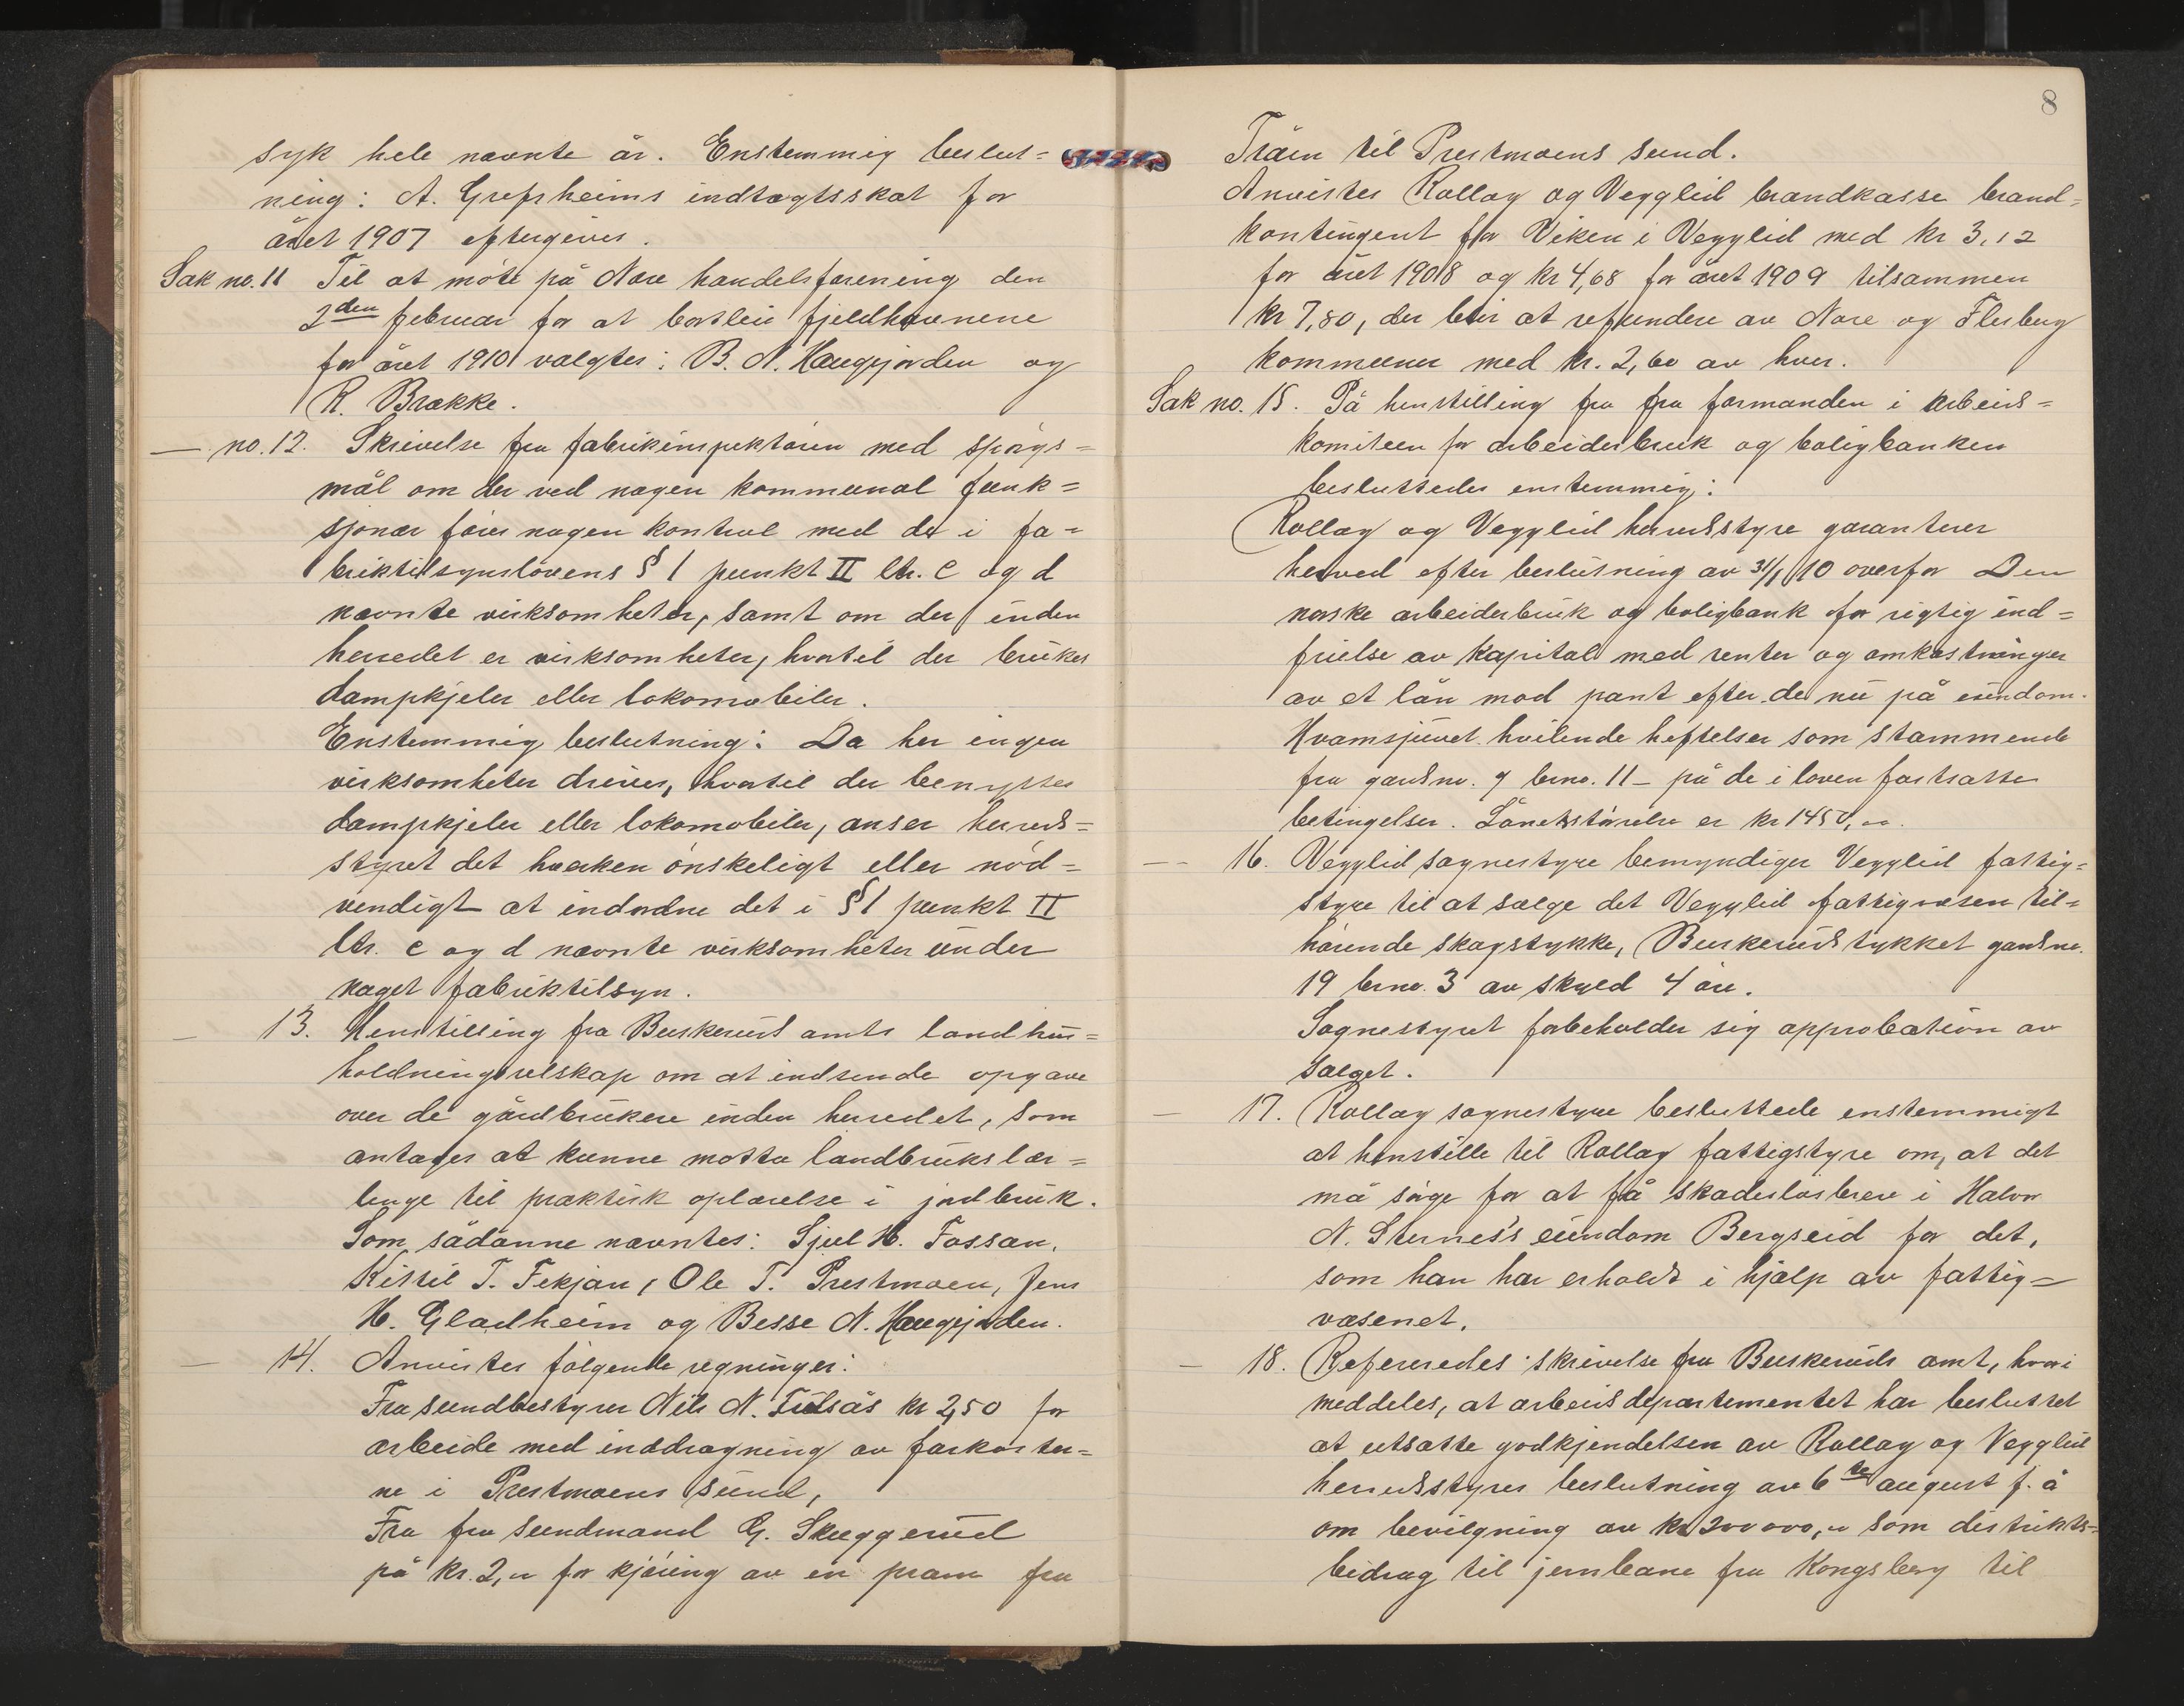 syk hele nævnte år. Enstemmig beslut=
ning: A. Grefsheims indtægtsskat for
året 1907 eftergives.
Sak no. 11 Til at møte på Nore handelsforening den
2den februar for at bortleie fjeldhavnene
for året 1910 valgtes: B. N. Haugjorden og
R. Brække.
— no. 12. Skrivelse fra fabrikinspektøren med spørgs=
mål om der ved nogen kommunal funk=
sjonær føies nogen kontrol med de i fa=
briktilsynslovens § 1 punkt II ltr. c og d
nævnte virksomheter, samt om der inden
herredet er virksomheter, hvortil der brukes
dampkjeler eller lokomobiler.
Enstemmig beslutning: Da her ingen
virksomheter drives, hvortil der benyttes
dampkjeler eller lokomobiler, anser herreds=
styret det hverken ønskeligt eller nød=
vendigt at indordne det i § 1 punkt II
ltr. c og d nævnte virksomheter under
noget fabriktilsyn.
— 13. Henstilling fra Buskerud amts landhus=
holdningsselskap om at indsende opgave
over de gårdbrukere inden herredet, som
antages at kunne motta landbrukslær=
linge til praktisk oplærelse i jordbruk.
Som sådanne nævntes: Sjul H. Fossan,
Kittil T. Fekjan, Ole T. Prestmoen, Jens
H. Gladheim og Besse N. Haugjorden.
— 14. Anvistes følgende regninger:
Fra sundbestyrer Nils N. Tulsås kr 2,50 for
arbeide med inddragning av farkoster=
ne i Prestmoens sund,
Fra fra sundmand G. Skuggerud
på kr. 2," for kjøring av en pram fra
8
Tråen til Prestmoens sund.
Anvistes Rollag og Vegglid brandkasse brand=
kontingent for Viken i Vegglid med kr 3,12
for året 1908 og kr 4,68 for året 1909 tilsammen
kr 7,80, der blir at refundere av Nore og Flesberg
kommuner med kr. 2,60 av hver.
Sak no. 15. På henstilling fra fra formanden i arbeids=
komiteen for arbeiderbruk og boligbanken
besluttedes enstemmig:
Rollag og Vegglid herredsstyre garanterer
herved efter beslutning av 31/1 10 overfor Den
norske arbeiderbruk og boligbank for rigtig ind=
frielse av kapital med renter og omkostninger
av et lån mod pant efter de nu på eiendom.
Hvamsjuvet hvilende heftelser som stammende
fra gardsno. 9 brno. 11 – på de i loven fortsatte
betingelser. Lånetsstørrelse er kr 1450,"
— 16. Vegglid sognestyre bemyndiger Vegglid fattig=
styre til at sælge det Vegglid fattigvæsen til=
hørende skogstykke, Buskerudstykket gardsno.
19 brno. 3 av skyld 4 øre.
Sognestyret forbeholder sig approbation av
salget.
— 17. Rollag sognestyre besluttede enstemmigt
at henstille til Rollag fattigstyre om, at det
må sørge for at få skadesløsbrev i Halvor
N. Sternes's eiendom Bergseid for det,
som han har erholdt i hjælp av fattig=
væsenet.
— 18. Refereredes skrivelse fra Buskeruds amt, hvori
meddeles, at arbeidsdepartementet har besluttet
at utsætte godkjendelsen av Rollag og Vegglid
herredsstyres beslutning av 6te august f. å
om bevilgning av kr 200 000," som distrikts=
bidrag til jernbane fra Kongsberg til